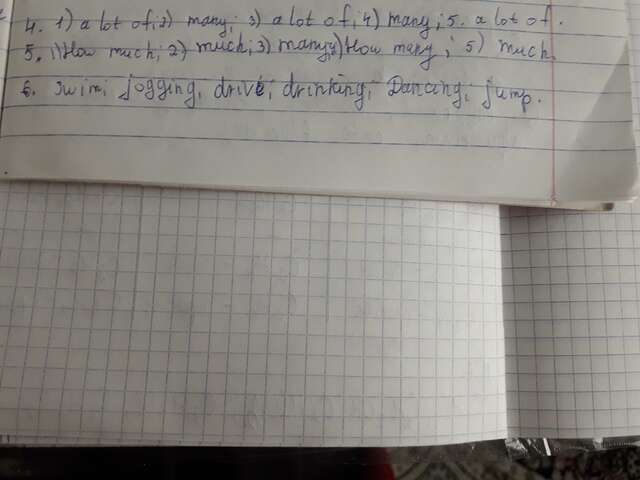 4. 1) a lot of; 2) many; 3) a lot of; 4) many; 5. a lot of.
5. 1) How much; 2) much; 3) many; 4) How many; 5) much.
6. swim; jogging; drive; drinking; Dancing; jump.